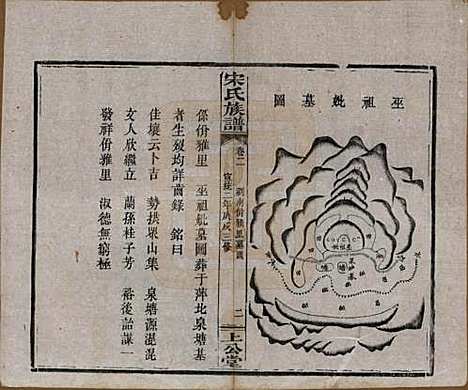 圖墓妣祖巫
宋氏族譜
卷二
宣統二年庚戌三修
二
上公堂
係份雅里 巫祖妣墓圖葬于萍北泉塘基
者生歿均詳齒錄 銘曰
佳壤云卜吉 勢拱眾山集 泉塘源混混
女人欣繼立 蘭孫桂子芳 裕後詒謀一
發祥份雅里 淑德無窮極